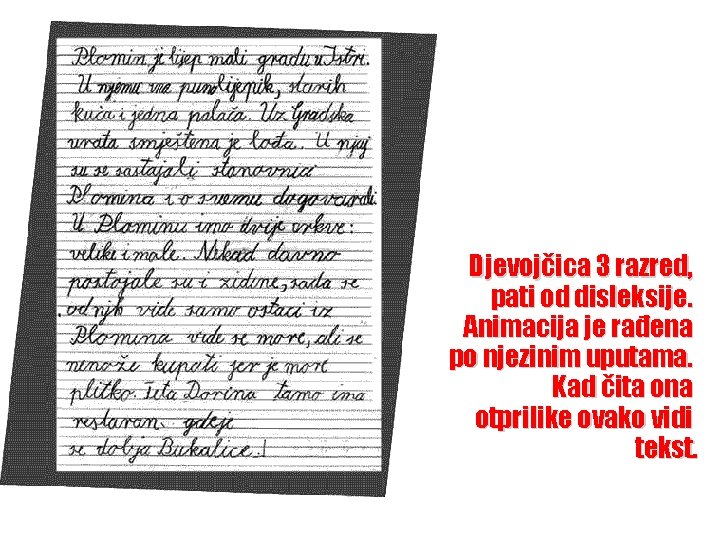 Plomin je lijep mali grad u Istri.
U njemu ima puno lijepih, starih
kuća i jedna palača. Uz Gradska
vrata smještena je lođa. U njoj
su se sastajali stanovnici
Plomina i o svemu dogovarali.
U Plominu imo dvije crkve:
velike i male. Nekad davno
postojale su i zidine, sada se
od njih vide samo ostaci iz
Plomina vide se more, ali se
nemože kupati jer je more
plitko. Teta Dorina tamo ima
restaran gdje
se dobja Bukalice.
Djevojčica 3 razred,
pati od disleksije.
Animacija je rađena
po njezinim uputama.
Kad čita ona
otprilike ovako vidi
tekst.